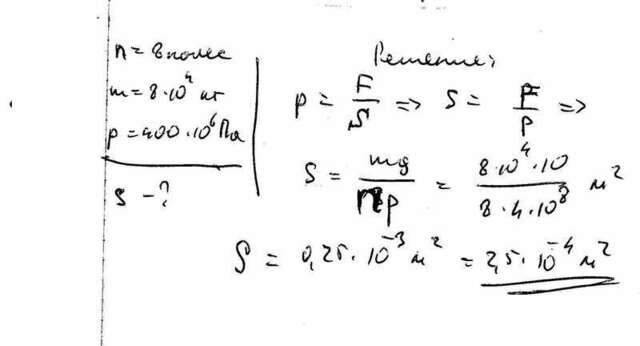 n = 8 колес
m = 8·10⁴ кг
p = 400·10⁶ Па
S - ?
Решение:
p = F/S => S = F/p =>
S = mg/np = 8·10⁴·10/8·4·10⁸ м²
S = 0,25·10⁻³ м² = 2,5·10⁻⁴ м²